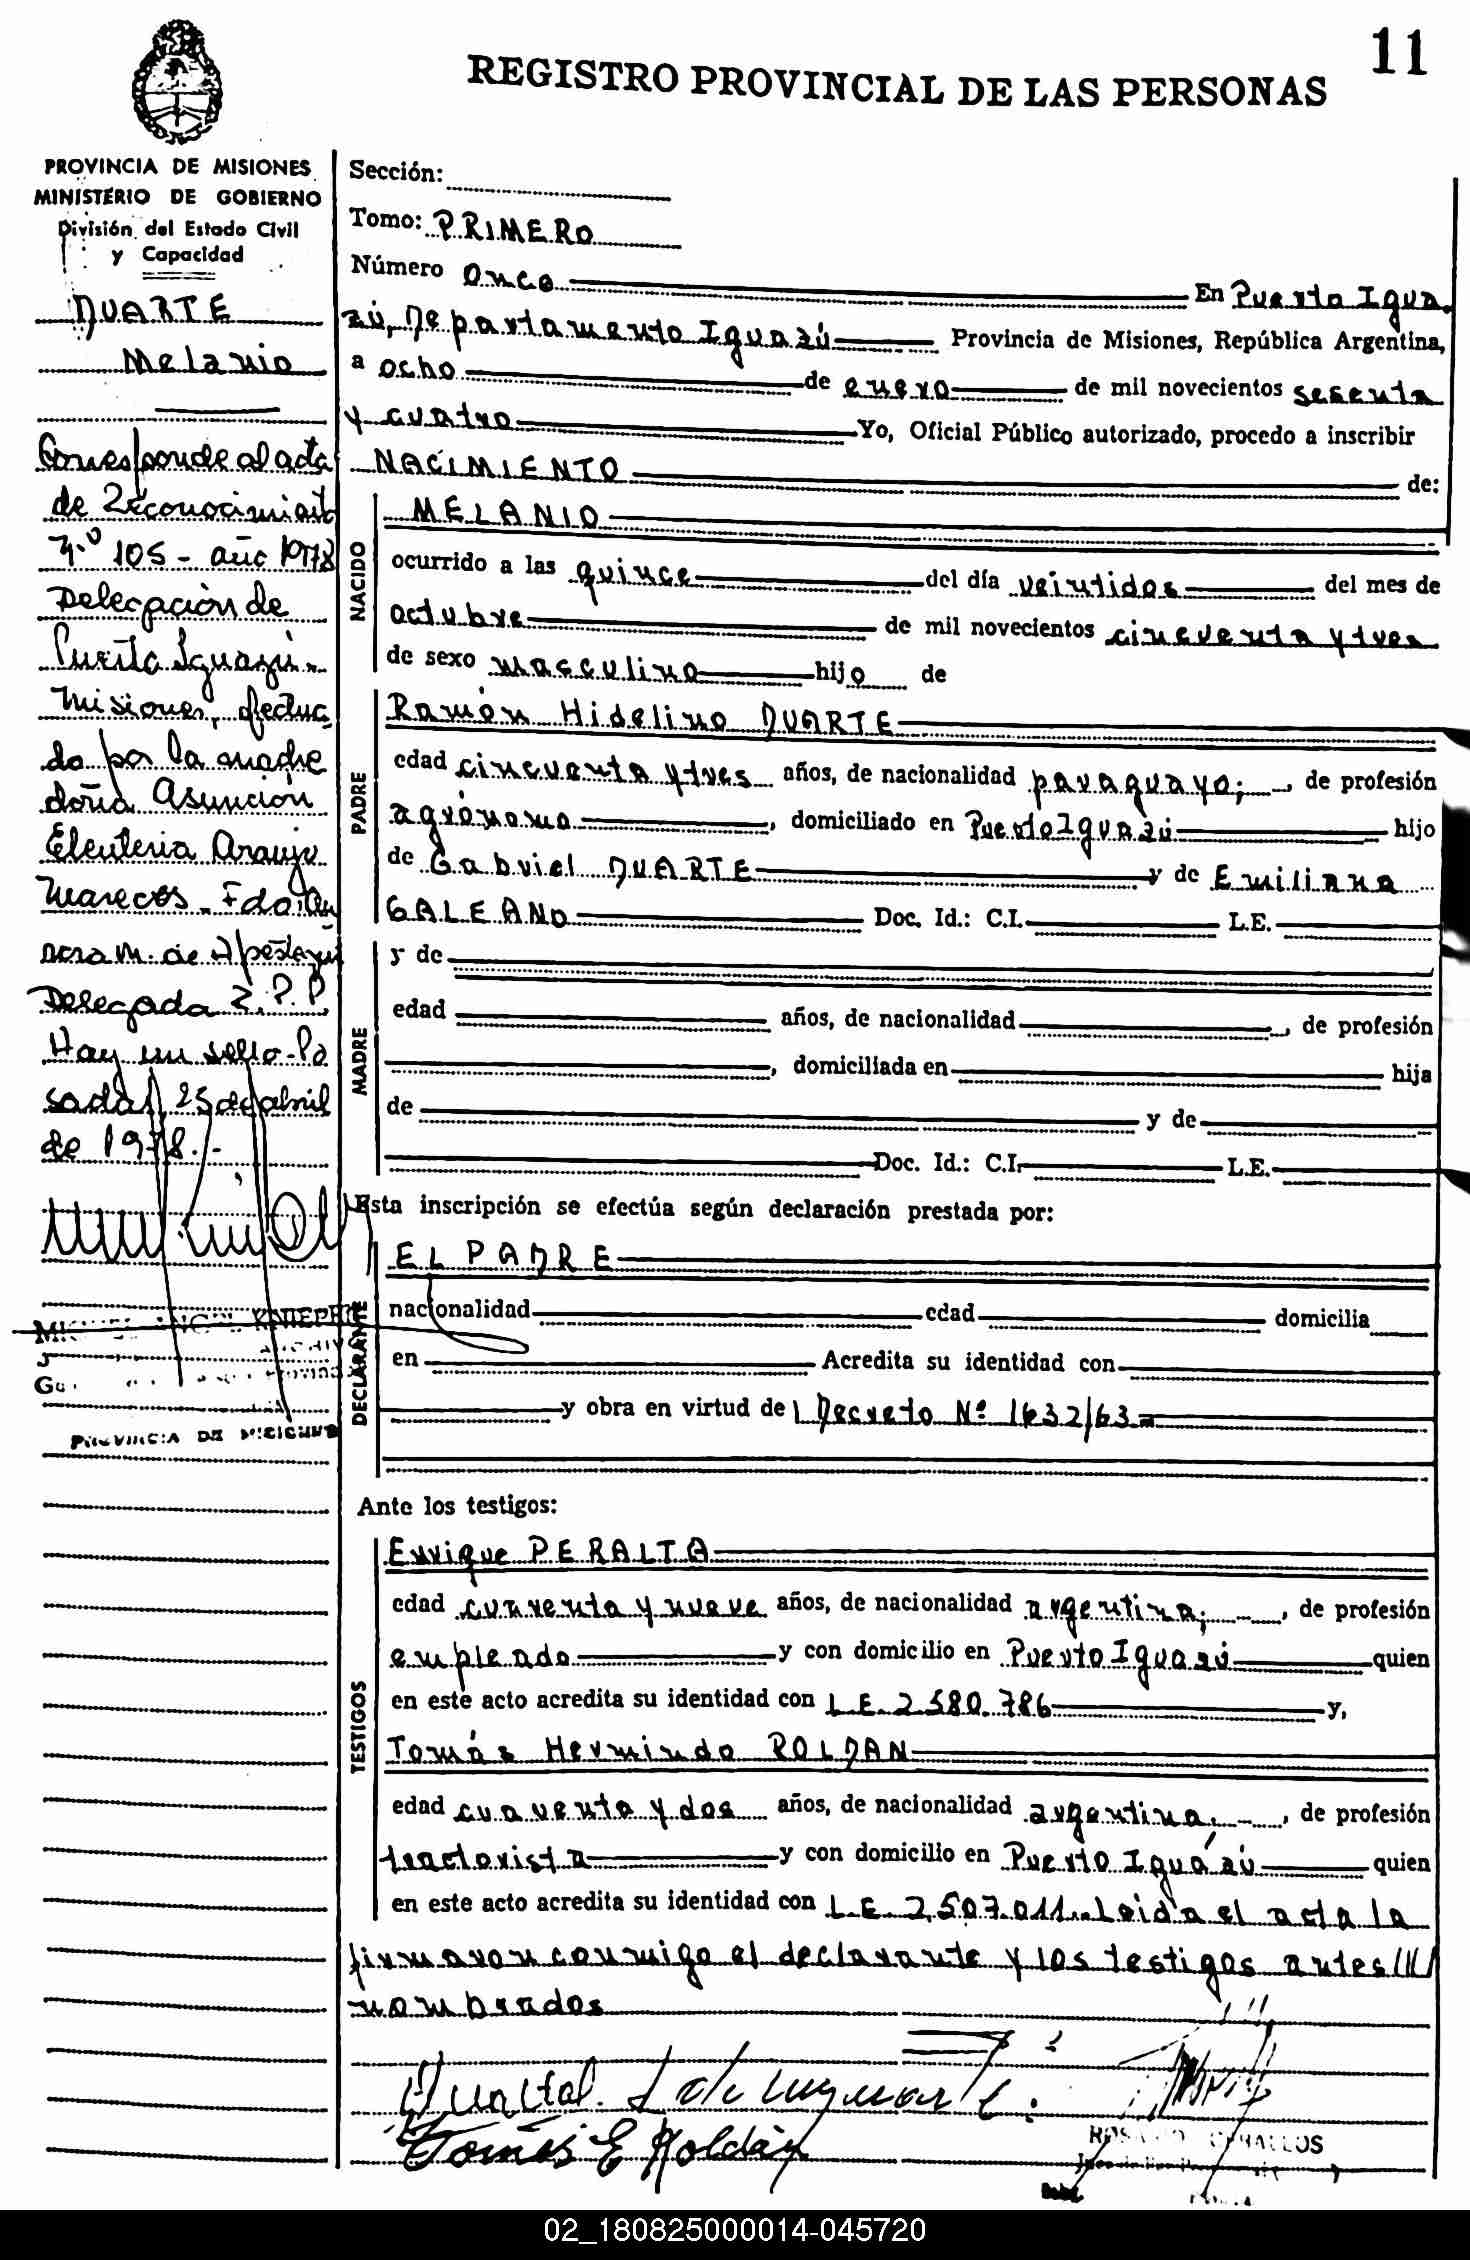 11
REGISTRO PROVINCIAL DE LAS PERSONAS
PROVINCIA DE MISIONES
MINISTERIO DE GOBIERNO
División del Estado Civil
y Capacidad
DUARTE
Melanio
Corresponde al acta
de Reconocimiento
N.º 105 - año 1978
Delegación de
Puerto Iguazú -
Misiones, efectua
do por la madre
doña Asunción
Eleuteria Araujo
Marecos - Fdo:
Delegada R.P.P.
Hay un sello - Po
sadas, 25 de abril
de 1978.-
PROVINCIA DE MISIONES
Sección:
Tomo: PRIMERO
Número Once En Puerto Igua
zú, Departamento Iguazú Provincia de Misiones, República Argentina,
a ocho de enero de mil novecientos sesenta
y cuatro Yo, Oficial Público autorizado, procedo a inscribir
NACIMIENTO de:
NACIDO
MELANIO
ocurrido a las quince del día veintidos del mes de
octubre de mil novecientos cincuenta y tres
de sexo masculino hijo de
PADRE
Ramón Hidelino DUARTE
edad cincuenta y tres años, de nacionalidad paraguayo; , de profesión
agrónomo , domiciliado en Puerto Iguazú hijo
de Gabriel DUARTE y de Emiliana
GALEANO Doc. Id.: C.I. L.E.
MADRE
y de
edad años, de nacionalidad , de profesión
, domiciliada en hija
de y de
Doc. Id.: C.I. L.E.
Esta inscripción se efectúa según declaración prestada por:
DECLARANTE
EL PADRE
nacionalidad edad domicilia
en Acredita su identidad con
y obra en virtud del Decreto Nº 1632/63=
Ante los testigos:
TESTIGOS
Enrique PERALTA
edad cuarenta y nueve años, de nacionalidad argentina; , de profesión
empleado y con domicilio en Puerto Iguazú quien
en este acto acredita su identidad con L.E. 2.580.786 y,
Tomás Hermindo ROLDAN
edad cuarenta y dos años, de nacionalidad argentina; , de profesión
tractorista y con domicilio en Puerto Iguazú quien
en este acto acredita su identidad con L.E. 2.507.011.. Leida el acta la
firmaron conmigo el declarante y los testigos antes ///
nombrados
Tomás E Roldán
CEBALLOS
02_180825000014-045720